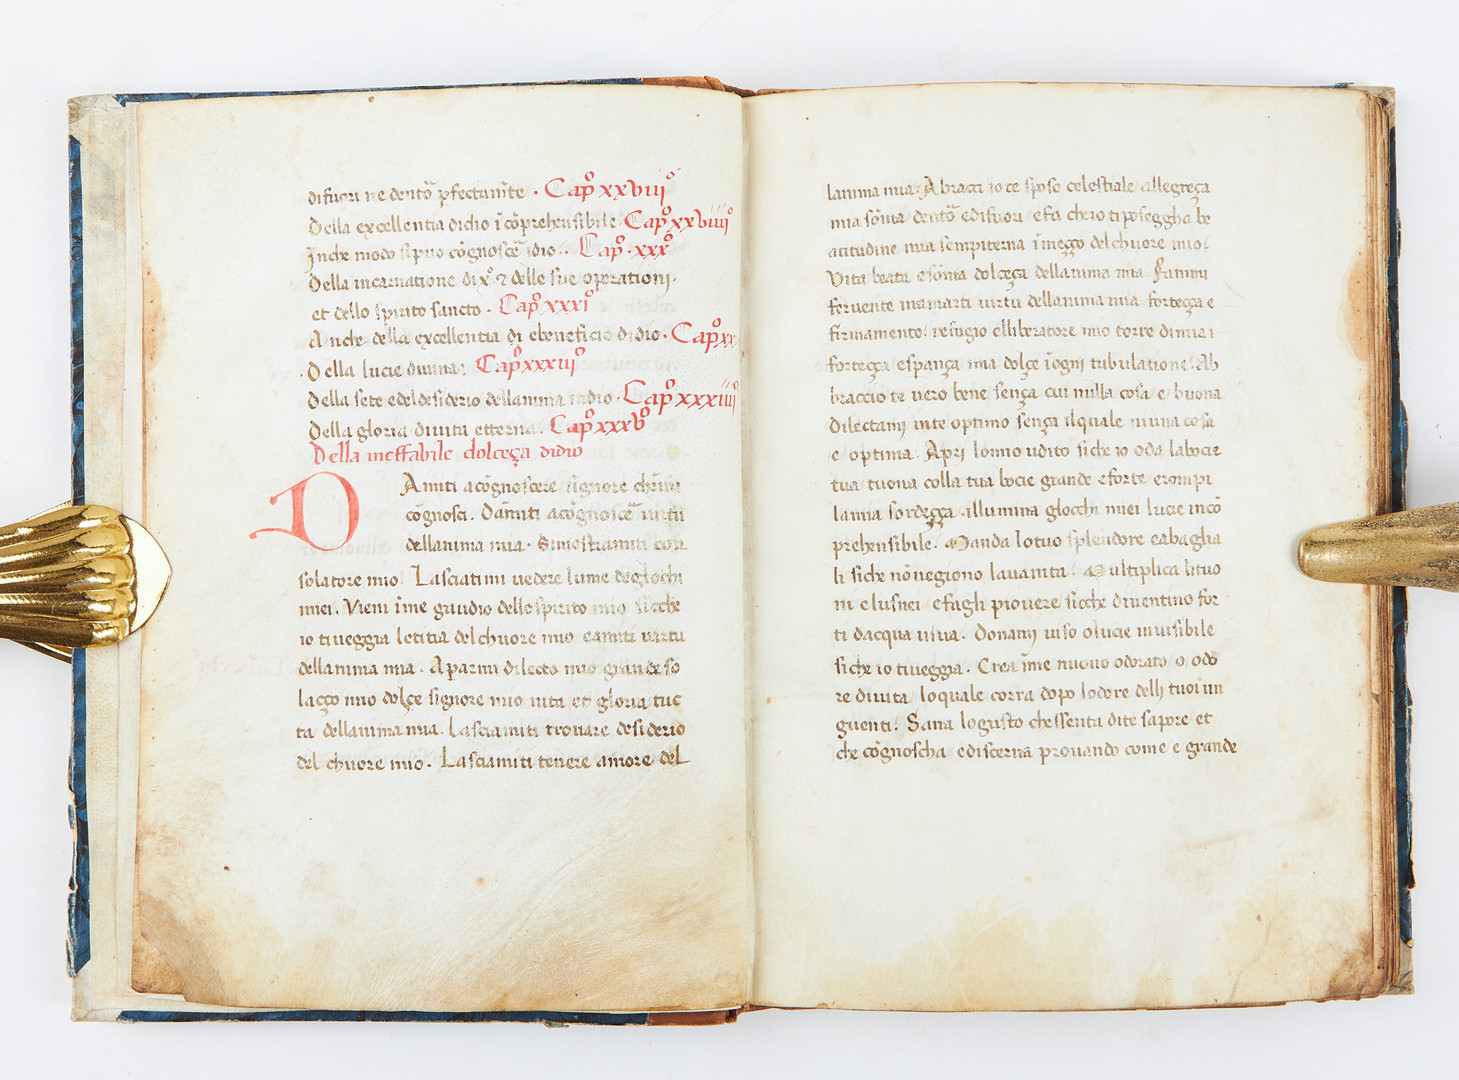 difuori ne dentō pfectam̄te · Capº xxviiiº
Della excellentia didio īcōprehensibile Capº xxviiiiº
Inche modo sipuo cōgnoscē idio · Capº · xxxº
Della incarnatione di xº ⁊ delle sue operationi ·
et dello spirito sancto · Capº xxxiº
Anche della excellentia di ebeneficio didio · Capº xx
· Della lucie diuina · Capº xxxiiiº
Della sete edeldesiderio dellanima indio · Capº xxxiiiiº
Della gloria diuita etterna · Capº xxxvº
Della ineffabile dolceça didio
DAmiti acōgnoscere signore chemi
cōgnosci. Damiti acōgnoscē uirtu
dellanima mia · Dimostramiti con
solatore mio. Lasciatimi uedere lume degliochi
miei. Vieni īme gaudio dello spirito mio sicche
io tiueggia letitia del chuore mio eamiti uirtu
dellanima mia. Aparmi dilecto mio grande so
laçço mio dolçe signore mio uita et gloria tuc
ta dellanima mia. Lasciamiti trouare desiderio
del chuore mio. Lasciamiti tenere amore del
lanima mia. Abracci io te sposo celestiale allegreça
mia sōma dentō edifuori efa cheio tiposeggha be
atitudine mia sempiterna īmeçço delchuore mio.
Vita beata esōma dolceça dellanima mia. Fammi
feruente inamarti uirtu dellanima mia forteçça e
firmamento. refugio elliberatore mio torre di mia
forteçça esperança mia dolçe īogni tribulatione. Ab
braccio te uero bene sença cui nulla cosa e buona
Dilectami inte optimo sença ilquale niuna cosa
e optima. Apri lomio udito siche io oda labocie
tua tuona colla tua bocie grande eforte erompi
lamia sordeçça. illumina glocchi miei lucie incō
prehensibile. Manda lotuo splendore eabaglia
li siche nōuegiono lauanita. Multiplica lituo
ni elusnei efagli piouere sicche diuentino fon
ti dacqua uiua. Donami uiso o lucie inuisibile
siche io tiueggia. Crea īme nuouo odorato o odo
re diuita loquale corra dopo lodore delli tuoi un
guenti. Sana logusto chessenta dite sapore et
che cōgnoscha ediscerna prouando come e grande